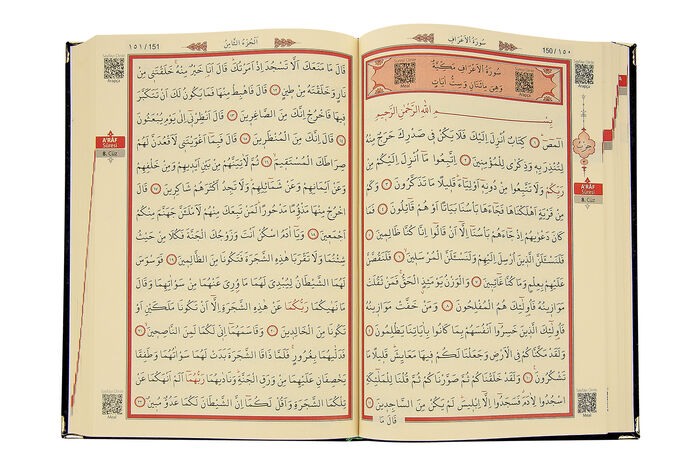 سُورَةُ الْأَعْرَافِ
150 / ١٥٠
سُورَةُ الْأَعْرَافِ مَكِّيَّةٌ
وَهِيَ مِائَتَانِ وَسِتُّ اٰيَاتٍ
Meal
Arapça
بِسْمِ اللّٰهِ الرَّحْمٰنِ الرَّحِيمِ
الٓمٓصٓ ١ كِتَابٌ اُنْزِلَ اِلَيْكَ فَلَا يَكُنْ فِي صَدْرِكَ حَرَجٌ مِنْهُ
لِتُنْذِرَ بِهِ وَذِكْرٰى لِلْمُؤْمِنِينَ ٢ اِتَّبِعُوا مَا اُنْزِلَ اِلَيْكُمْ مِنْ
رَبِّكُمْ وَلَا تَتَّبِعُوا مِنْ دُونِهِ اَوْلِيَاءَ قَلِيلًا مَا تَذَكَّرُونَ ٣ وَكَمْ
مِنْ قَرْيَةٍ اَهْلَكْنَاهَا فَجَاءَهَا بَأْسُنَا بَيَاتًا اَوْ هُمْ قَائِلُونَ ٤ فَمَا
كَانَ دَعْوٰيهُمْ اِذْ جَاءَهُمْ بَأْسُنَا اِلَّا اَنْ قَالُوا اِنَّا كُنَّا ظَالِمِينَ ٥
فَلَنَسْـَٔلَنَّ الَّذِينَ اُرْسِلَ اِلَيْهِمْ وَلَنَسْـَٔلَنَّ الْمُرْسَلِينَ ٦ فَلَنَقُصَّنَّ
عَلَيْهِمْ بِعِلْمٍ وَمَا كُنَّا غَائِبِينَ ٧ وَالْوَزْنُ يَوْمَئِذٍ الْحَقُّ فَمَنْ ثَقُلَتْ
مَوَازِينُهُ فَاُولٰئِكَ هُمُ الْمُفْلِحُونَ ٨ وَمَنْ خَفَّتْ مَوَازِينُهُ
فَاُولٰئِكَ الَّذِينَ خَسِرُوا اَنْفُسَهُمْ بِمَا كَانُوا بِاٰيَاتِنَا يَظْلِمُونَ ٩
وَلَقَدْ مَكَّنَّاكُمْ فِي الْاَرْضِ وَجَعَلْنَا لَكُمْ فِيهَا مَعَايِشَ قَلِيلًا مَا
تَشْكُرُونَ ١٠ وَلَقَدْ خَلَقْنَاكُمْ ثُمَّ صَوَّرْنَاكُمْ ثُمَّ قُلْنَا لِلْمَلٰئِكَةِ
اسْجُدُوا لِاٰدَمَ فَسَجَدُوا اِلَّا اِبْلِيسَ لَمْ يَكُنْ مِنَ السَّاجِدِينَ ١١
قَالَ مَا
حِزْب
A'RÂF
Sûresi
8. Cüz
Meal
١٥١ / 151
اَلْجُزْءُ الثَّامِنُ
قَالَ مَا مَنَعَكَ اَلَّا تَسْجُدَ اِذْ اَمَرْتُكَ قَالَ اَنَا خَيْرٌ مِنْهُ خَلَقْتَنِي مِنْ
نَارٍ وَخَلَقْتَهُ مِنْ طِينٍ ١٢ قَالَ فَاهْبِطْ مِنْهَا فَمَا يَكُونُ لَكَ اَنْ تَتَكَبَّرَ
فِيهَا فَاخْرُجْ اِنَّكَ مِنَ الصَّاغِرِينَ ١٣ قَالَ اَنْظِرْنِي اِلٰى يَوْمِ يُبْعَثُونَ
١٤ قَالَ اِنَّكَ مِنَ الْمُنْظَرِينَ ١٥ قَالَ فَبِمَا اَغْوَيْتَنِي لَاَقْعُدَنَّ لَهُمْ
صِرَاطَكَ الْمُسْتَقِيمَ ١٦ ثُمَّ لَاٰتِيَنَّهُمْ مِنْ بَيْنِ اَيْدِيهِمْ وَمِنْ خَلْفِهِمْ
وَعَنْ اَيْمَانِهِمْ وَعَنْ شَمَائِلِهِمْ وَلَا تَجِدُ اَكْثَرَهُمْ شَاكِرِينَ ١٧ قَالَ
اخْرُجْ مِنْهَا مَذْؤُمًا مَدْحُورًا لَمَنْ تَبِعَكَ مِنْهُمْ لَاَمْلَـَٔنَّ جَهَنَّمَ مِنْكُمْ
اَجْمَعِينَ ١٨ وَيَا اٰدَمُ اسْكُنْ اَنْتَ وَزَوْجُكَ الْجَنَّةَ فَكُلَا مِنْ حَيْثُ
شِئْتُمَا وَلَا تَقْرَبَا هٰذِهِ الشَّجَرَةَ فَتَكُونَا مِنَ الظَّالِمِينَ ١٩ فَوَسْوَسَ
لَهُمَا الشَّيْطَانُ لِيُبْدِيَ لَهُمَا مَا وُ۫رِيَ عَنْهُمَا مِنْ سَوْاٰتِهِمَا وَقَالَ
مَا نَهٰيكُمَا رَبُّكُمَا عَنْ هٰذِهِ الشَّجَرَةِ اِلَّا اَنْ تَكُونَا مَلَكَيْنِ اَوْ
تَكُونَا مِنَ الْخَالِدِينَ ٢٠ وَقَاسَمَهُمَا اِنِّي لَكُمَا لَمِنَ النَّاصِحِينَ ٢١
فَدَلّٰيهُمَا بِغُرُورٍ فَلَمَّا ذَاقَا الشَّجَرَةَ بَدَتْ لَهُمَا سَوْاٰتُهُمَا وَطَفِقَا
يَخْصِفَانِ عَلَيْهِمَا مِنْ وَرَقِ الْجَنَّةِ وَنَادٰيهُمَا رَبُّهُمَا اَلَمْ اَنْهَكُمَا عَنْ
تِلْكُمَا الشَّجَرَةِ وَاَقُلْ لَكُمَا اِنَّ الشَّيْطَانَ لَكُمَا عَدُوٌّ مُبِينٌ ٢٢
Arapça
A'RÂF
Sûresi
8. Cüz
Meal